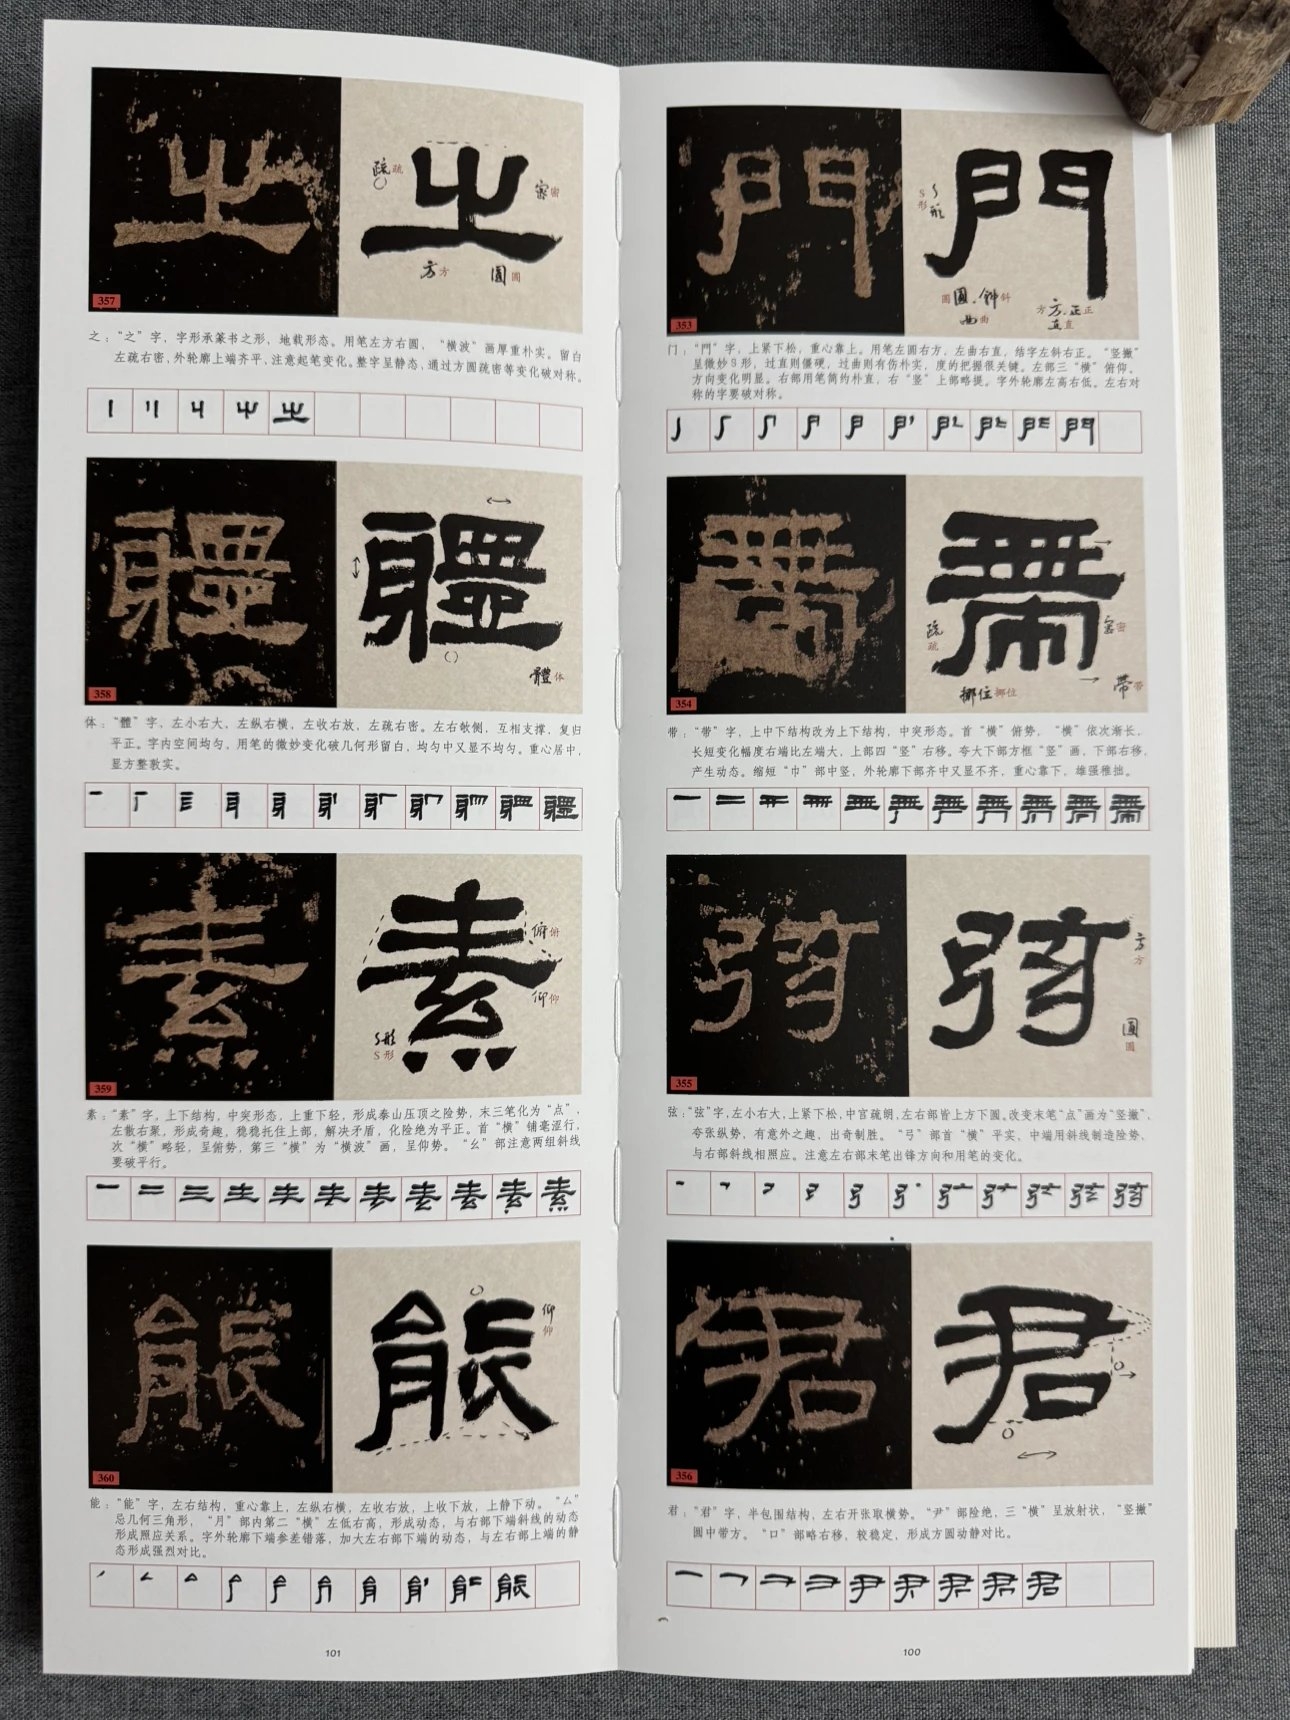 門
S形 S形
圓圆.斜斜
曲曲
方方.正正
直直
353
门：“門”字，上紧下松，重心靠上。用笔左圆右方，左曲右直，结字左斜右正。“竖撇”
呈微妙S形，过直则僵硬，过曲则有伤朴实，度的把握很关键。左部三“横”俯仰、
方向变化明显。右部用笔简约朴直，右“竖”上部略提。字外轮廓左高右低。左右对
称的字要破对称。
帶
疏疏
密密
挪位挪位
带带
354
带：“带”字，上中下结构改为上下结构，中突形态。首“横”俯势，“横”依次渐长，
长短变化幅度右端比左端大，上部四“竖”右移。夸大下部方框“竖”画，下部右移，
产生动态。缩短“巾”部中竖，外轮廓下部齐中又显不齐，重心靠下，雄强稚拙。
弦
方方
圓圆
355
弦：“弦”字，左小右大，上紧下松，中宫疏朗，左右部皆上方下圆。改变末笔“点”画为“竖撇”，
夸张纵势，有意外之趣，出奇制胜。“弓”部首“横”平实，中端用斜线制造险势，
与右部斜线相照应。注意左右部末笔出锋方向和用笔的变化。
君
356
君：“君”字，半包围结构，左右开张取横势。“尹”部险绝，三“横”呈放射状，“竖撇”
圆中带方。“口”部略右移，较稳定，形成方圆动静对比。
100
之
疏疏
密密
方方
圓圆
357
之：“之”字，字形承篆书之形，地载形态。用笔左方右圆，“横波”画厚重朴实。留白
左疏右密，外轮廓上端齐平，注意起笔变化。整字呈静态，通过方圆疏密等变化破对称。
體
體体
358
体：“體”字，左小右大，左纵右横，左收右放，左疏右密。左右欹侧，互相支撑，复归
平正。字内空间均匀，用笔的微妙变化破几何形留白，均匀中又显不均匀。重心居中，
显方整敦实。
素
俯俯
仰仰
S形
S形
359
素：“素”字，上下结构，中突形态，上重下轻，形成泰山压顶之险势，末三笔化为“点”，
左散右聚，形成奇趣，稳稳托住上部，解决矛盾，化险绝为平正。首“横”铺毫涩行，
次“横”略轻，呈俯势，第三“横”为“横波”画，呈仰势。“幺”部注意两组斜线
要破平行。
能
仰仰
360
能：“能”字，左右结构，重心靠上，左纵右横，左收右放，上收下放，上静下动。“厶”
忌几何三角形，“月”部内第二“横”左低右高，形成动态，与右部下端斜线的动态
形成照应关系。字外轮廓下端参差错落，加大左右部下端的动态，与左右部上端的静
态形成强烈对比。
101